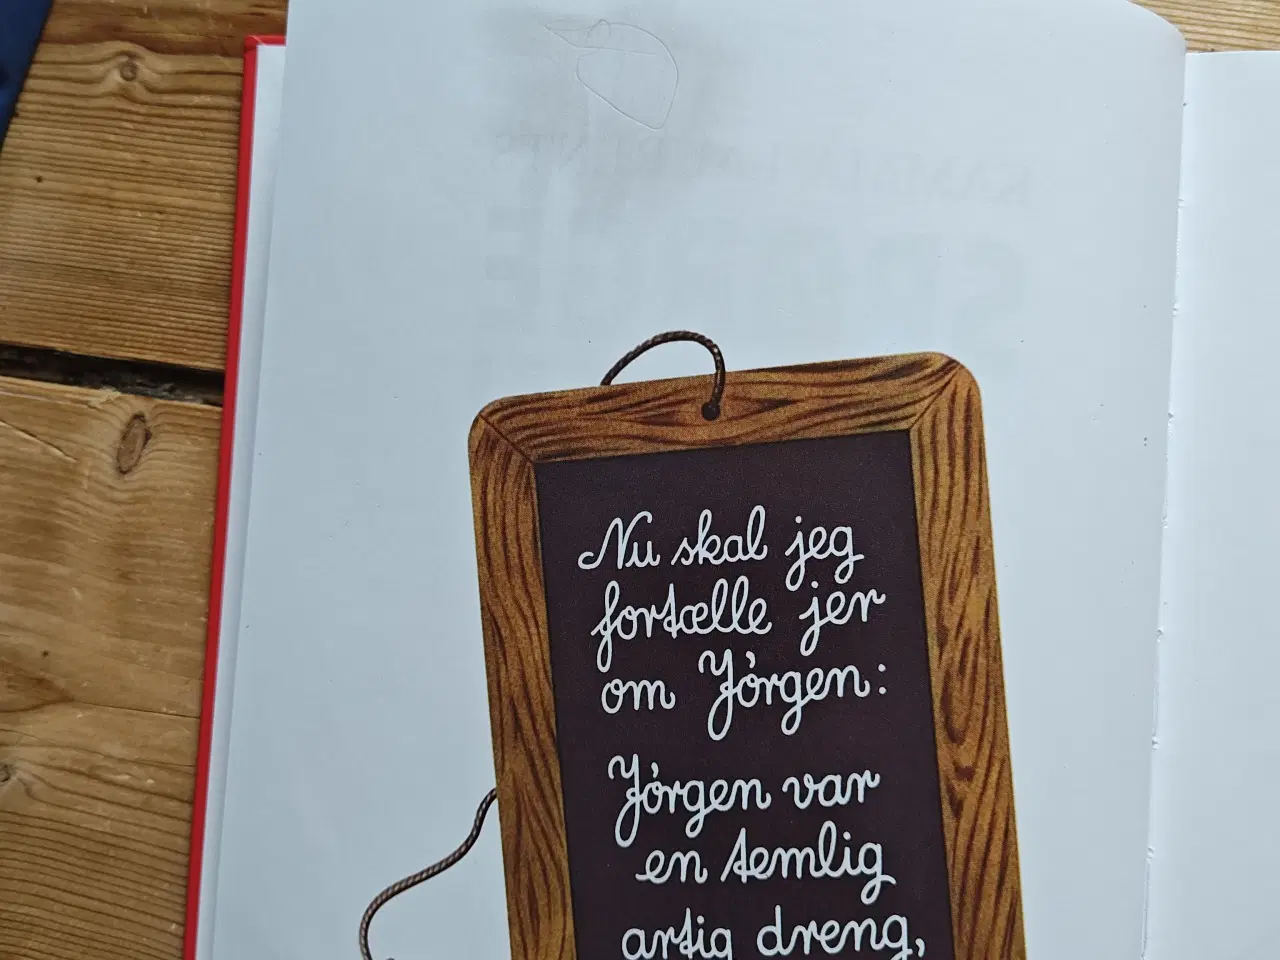 Nu skal jeg
fortælle jer
om Jörgen:
Jörgen var
en temlig
artig dreng,